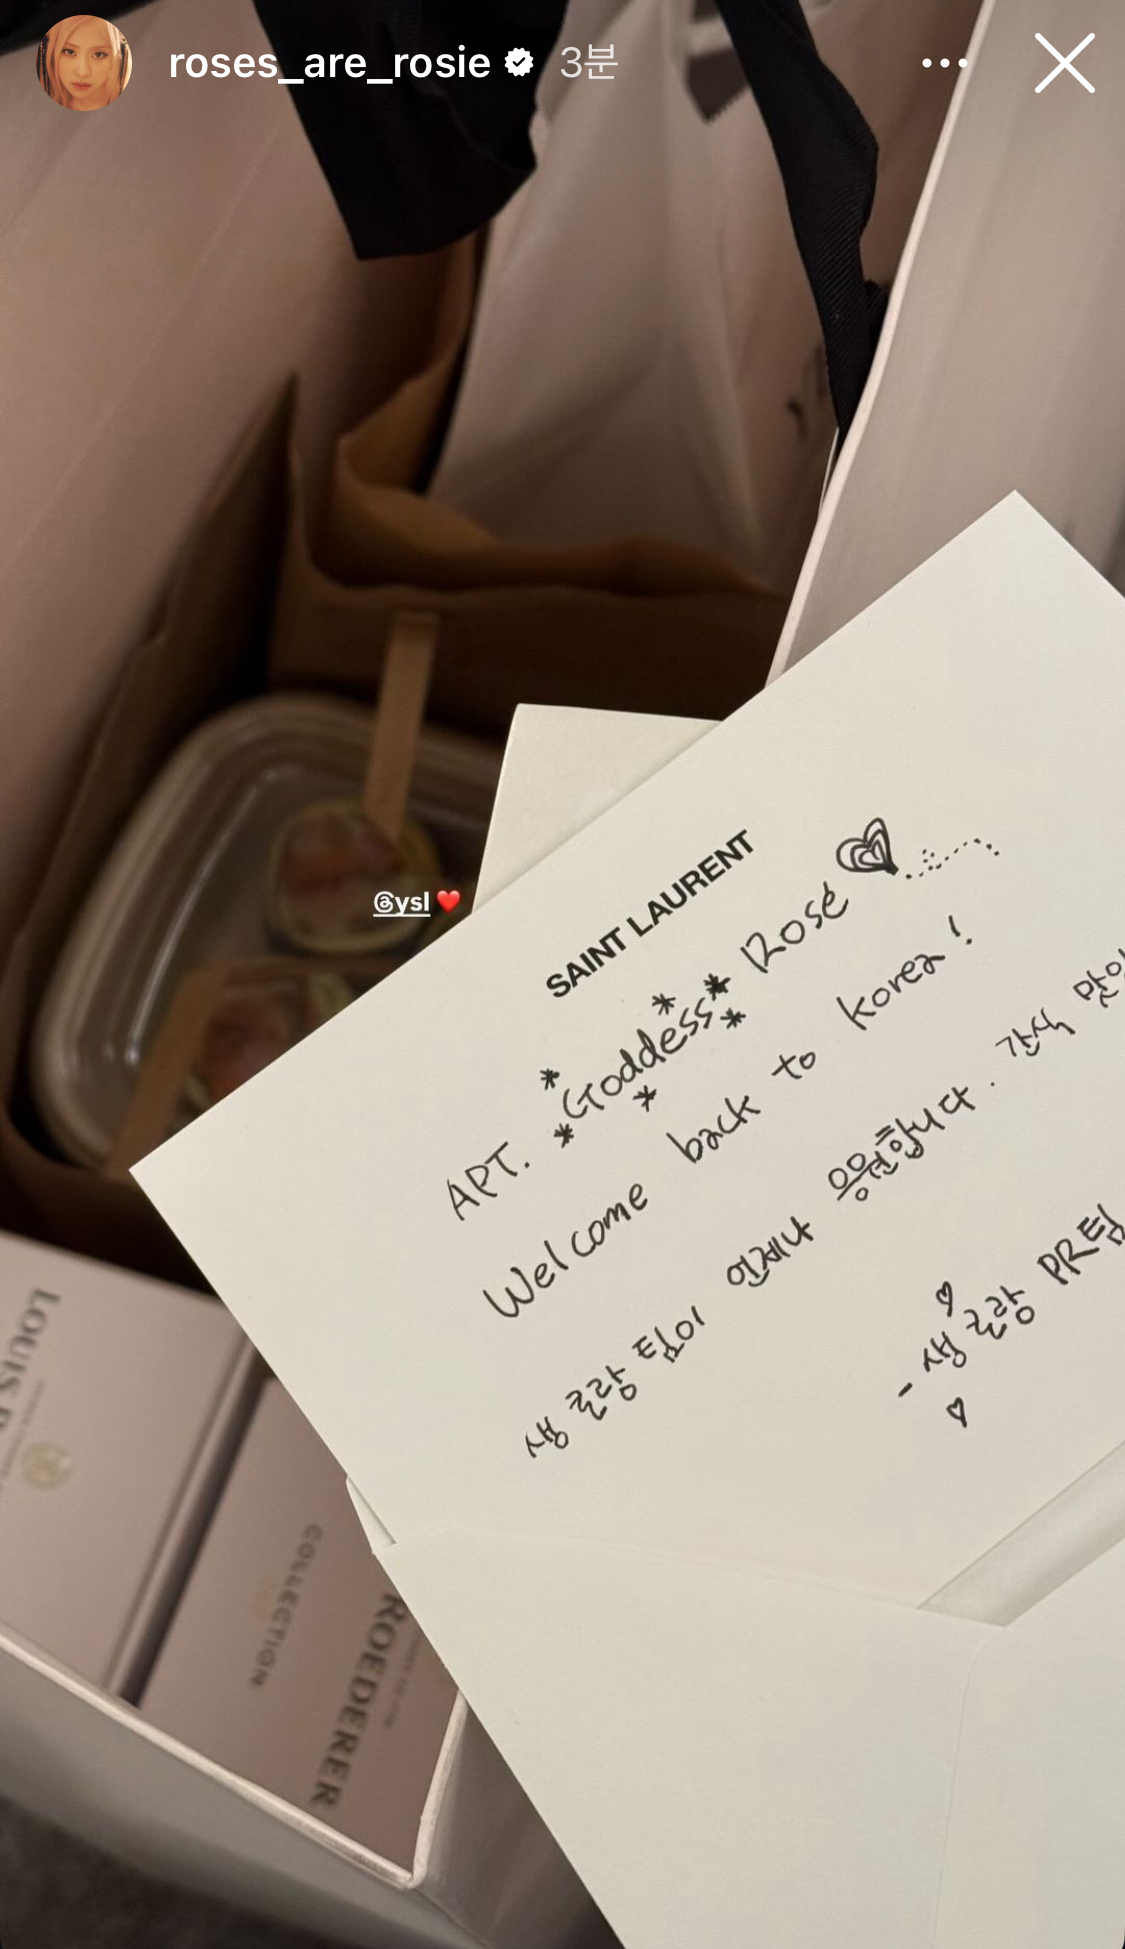 roses_are_rosie 3분
@ysl
SAINT LAURENT
APT. *Goddess* Rosé
Welcome back to korea!
생 로랑 팀이 언제나 응원합니다. 간식
- 생 로랑 PR팀
LOUIS
COLLECTION
ROEDERER